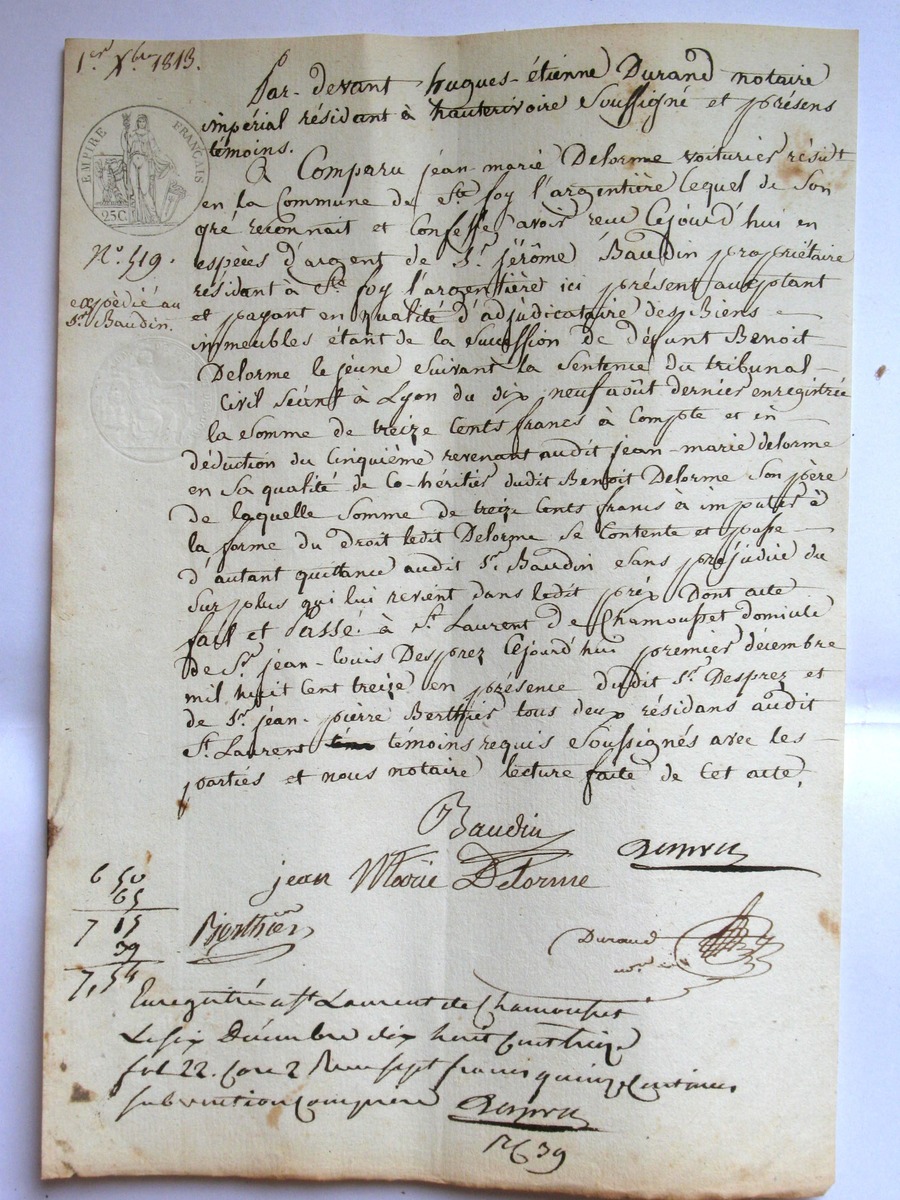 1er Xbre 1813.
Par-devant hugues-étienne Durand notaire
impérial résidant à hauterivoire Soussigné et présens
témoins.
EMPIRE FRANÇAIS
25C
A Comparu jean-marie Delorme voiturier résidt
en la Commune de Ste foy l'argentière lequel de Son
gré reconnait et Confesse avoir reçu Cejourd'hui en
espèces d'argent de Sr. jérôme Baudin propriétaire
résidant à Ste foy l'argentière ici présent acceptant
et payant en qualité d'adjudicataire des Biens
immeubles étant de la Succession de défunt Benoit
Delorme le jeune Suivant la Sentence du tribunal
Civil Séant à Lyon du dix neuf août dernier enregistrée
la Somme de treize Cents francs à Compte et en
déduction du Cinquième revenant audit jean-marie delorme
en Sa qualité de Co-héritier dudit Benoit Delorme Son père
de laquelle Somme de treize Cents francs à imputer à
la forme du droit ledit Delorme Se Contente et passe
d'autant quittance audit Sr. Baudin Sans préjudice du
Surplus qui lui revient dans ledit prix Dont acte
fait et Passé à St. Laurent de Chamousset domicile
de Sr. jean-Louis Desprez Cejourd'hui premier décembre
mil huit Cent treize en présence dudit Sr. Desprez et
de Sr. jean-pierre Berthier tous deux résidans audit
St. Laurent témoins requis Soussignés avec les
parties et nous notaire lecture faite de Cet acte.
No. 519.
expédié au
Sr. Baudin.
Baudin
Desprez
jean Marie Delorme
Berthier
Durand
6 50
65
7 15
39
7,54
Enregistré à St Laurent de Chamousset
Le six Décembre dix huit Cent treize
fol 22. Case 2 Reçu sept francs quinze Centimes
subvention Comprise
Desprez
39